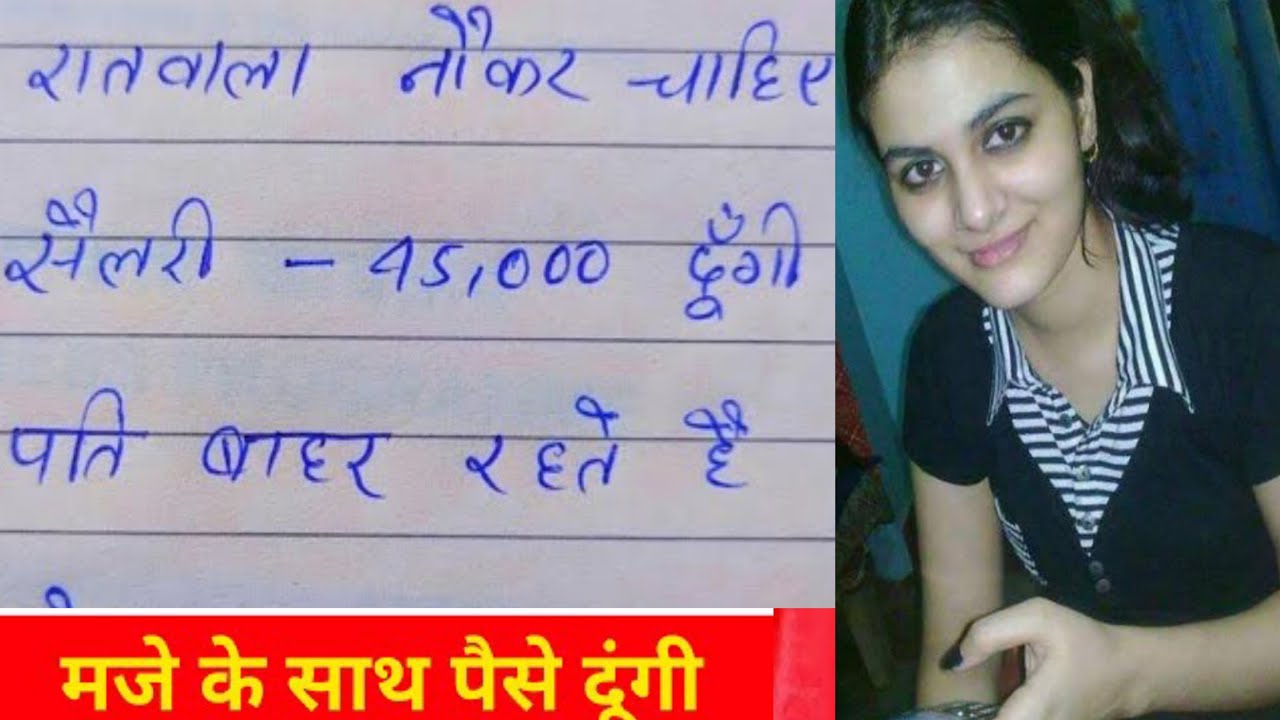 रातवाला नौकर चाहिए
सैलरी - 45,000 दूँगी
पति बाहर रहते है
मजे के साथ पैसे दूंगी